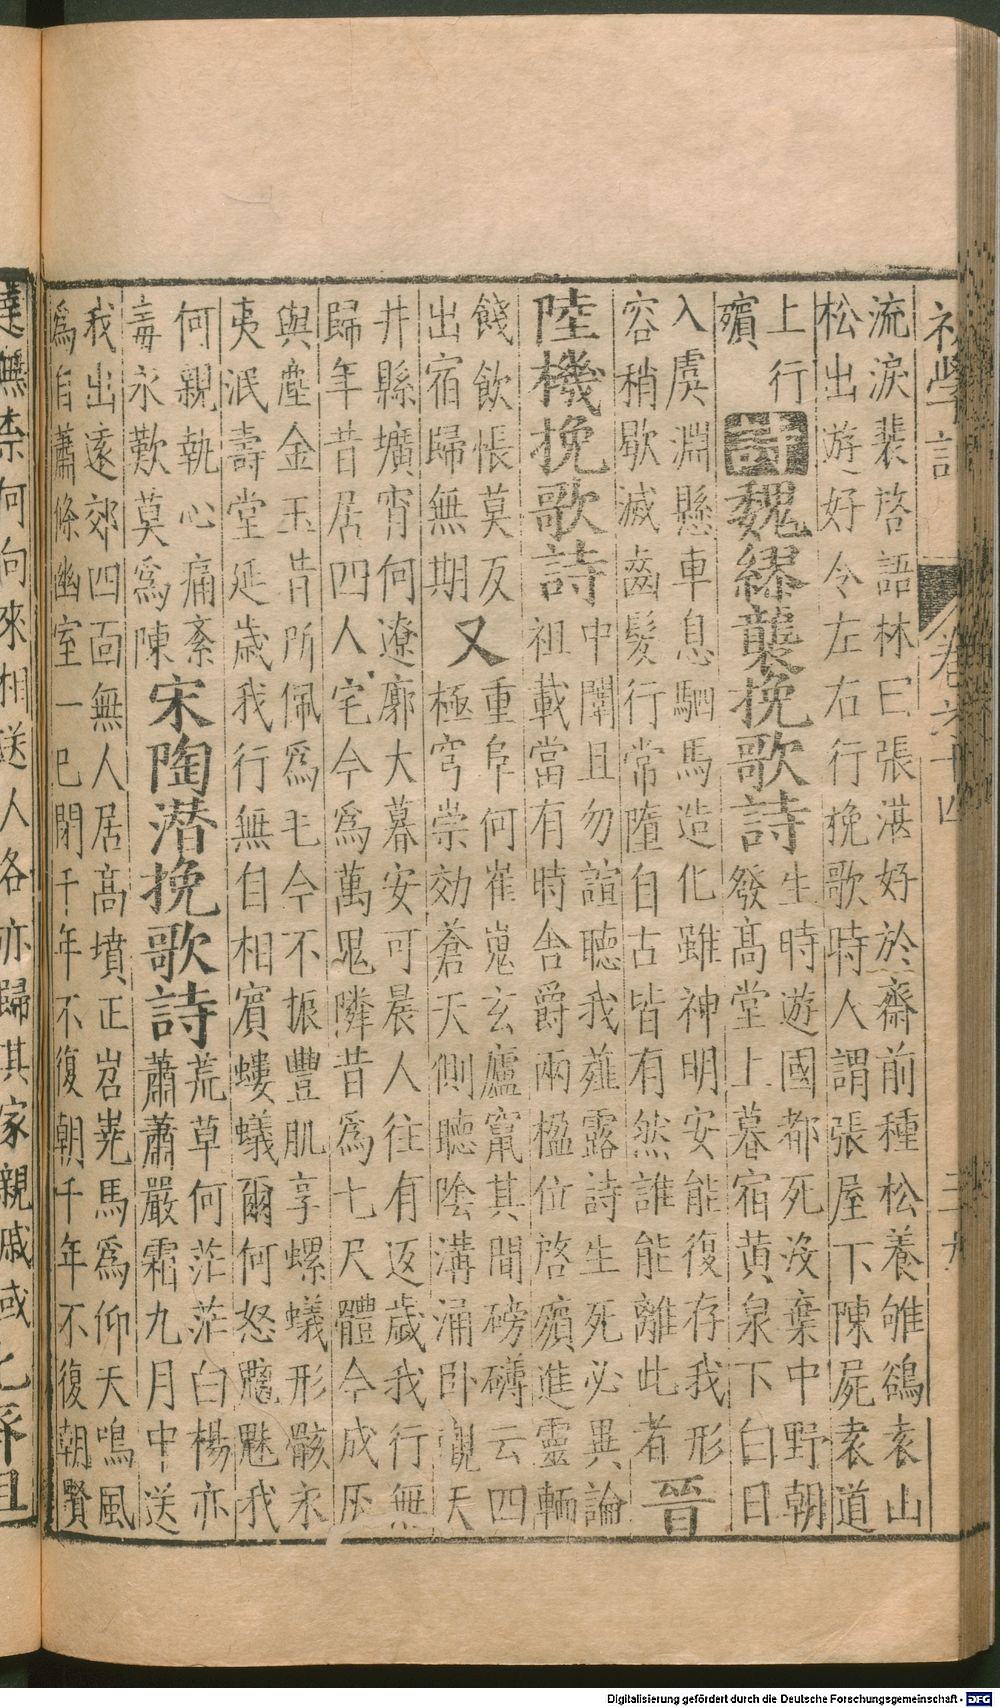 初學記 卷 十四 三九
流淚裴啓語林曰張湛好於齋前種松養雊鵒袁山
松出遊好令左右行挽歌時人謂張屋下陳屍袁道
上行
殯
詩 魏繆襲挽歌詩
生時遊國都死沒棄中野朝
發高堂上暮宿黃泉下白日
入虞淵懸車息駟馬造化雖神明安能復存我形
容稍歇滅齒髮行常墮自古皆有然誰能離此者
晉
陸機挽歌詩
中闈且勿諠聽我薤露詩生死必異論
祖載當有時舍爵兩楹位啓殯進靈輀
餞飲悵莫反
出宿歸無期
又
重阜何崔嵬玄廬竄其間磅礡云四
極穹崇効蒼天側聽陰溝涌卧觀天
井縣壙宵何遼廓大暮安可晨人往有返歲我行無
歸年昔居四人宅今爲萬鬼隣昔爲七尺體今成灰
與塵金玉昔所佩爲毛今不振豐肌享螺蟻形骸永
夷泯壽堂延歲我行無自相賓螻蟻爾何怒魑魅我
何親執心痛荼
毒永歎莫爲陳
宋陶潛挽歌詩
荒草何茫茫白楊亦
蕭蕭嚴霜九月中送
我出遠郊四面無人居高墳正岧嶤馬爲仰天鳴風
爲自蕭條幽室一已閉千年不復朝千年不復朝賢
達無柰何向來相送人各亦歸其家親戚或
Digitalisierung gefördert durch die Deutsche Forschungsgemeinschaft - DFG